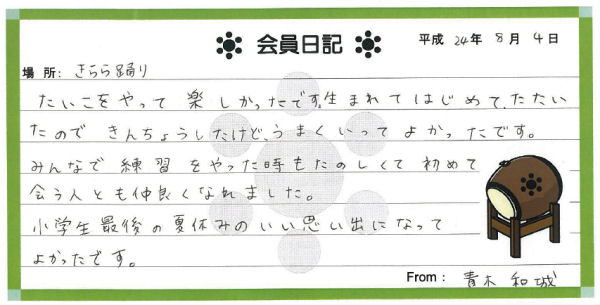 会員日記
平成 24年 8月 4日
場所: きらら踊り
たいこをやって楽しかったです。生まれてはじめて、たたい
たので きんちょうしたけど、うまくいってよかったです。
みんなで練習をやった時もたのしくて初めて
会う人とも仲良くなれました。
小学生最後の夏休みのいい思い出になって
よかったです。
From: 青木 和城